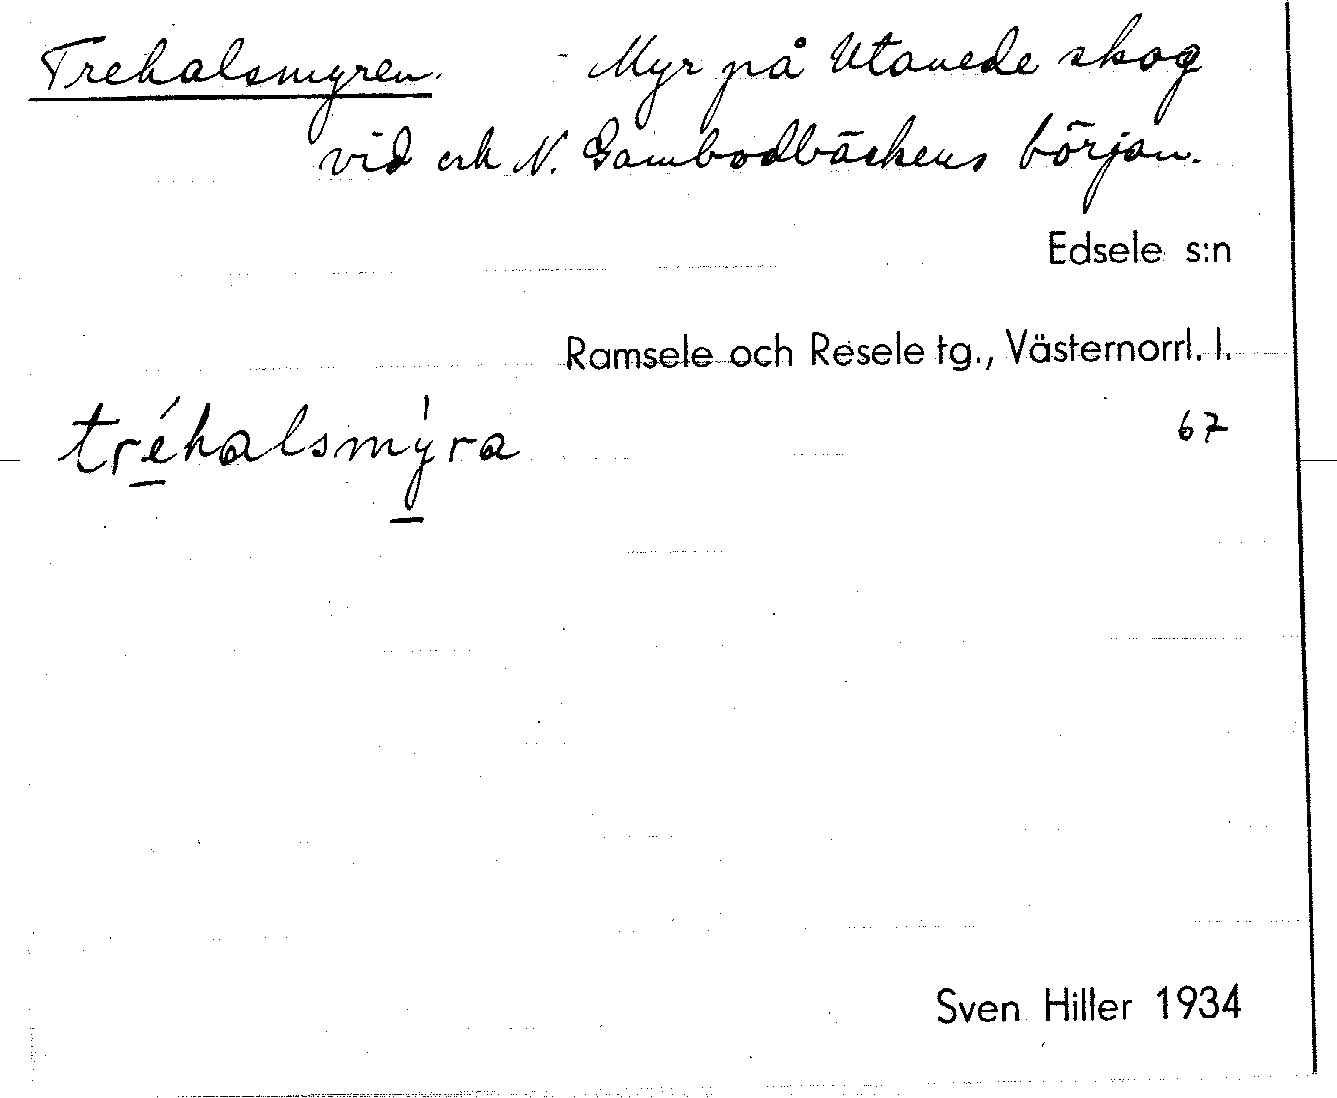 Trehalsmyren. - Myr på Utanede skog
vid erk N. Gambodbäckens början.
Edsele s:n
Ramsele och Resele tg., Västernorrl. l.
tréhalsmýra 67
Sven Hiller 1934